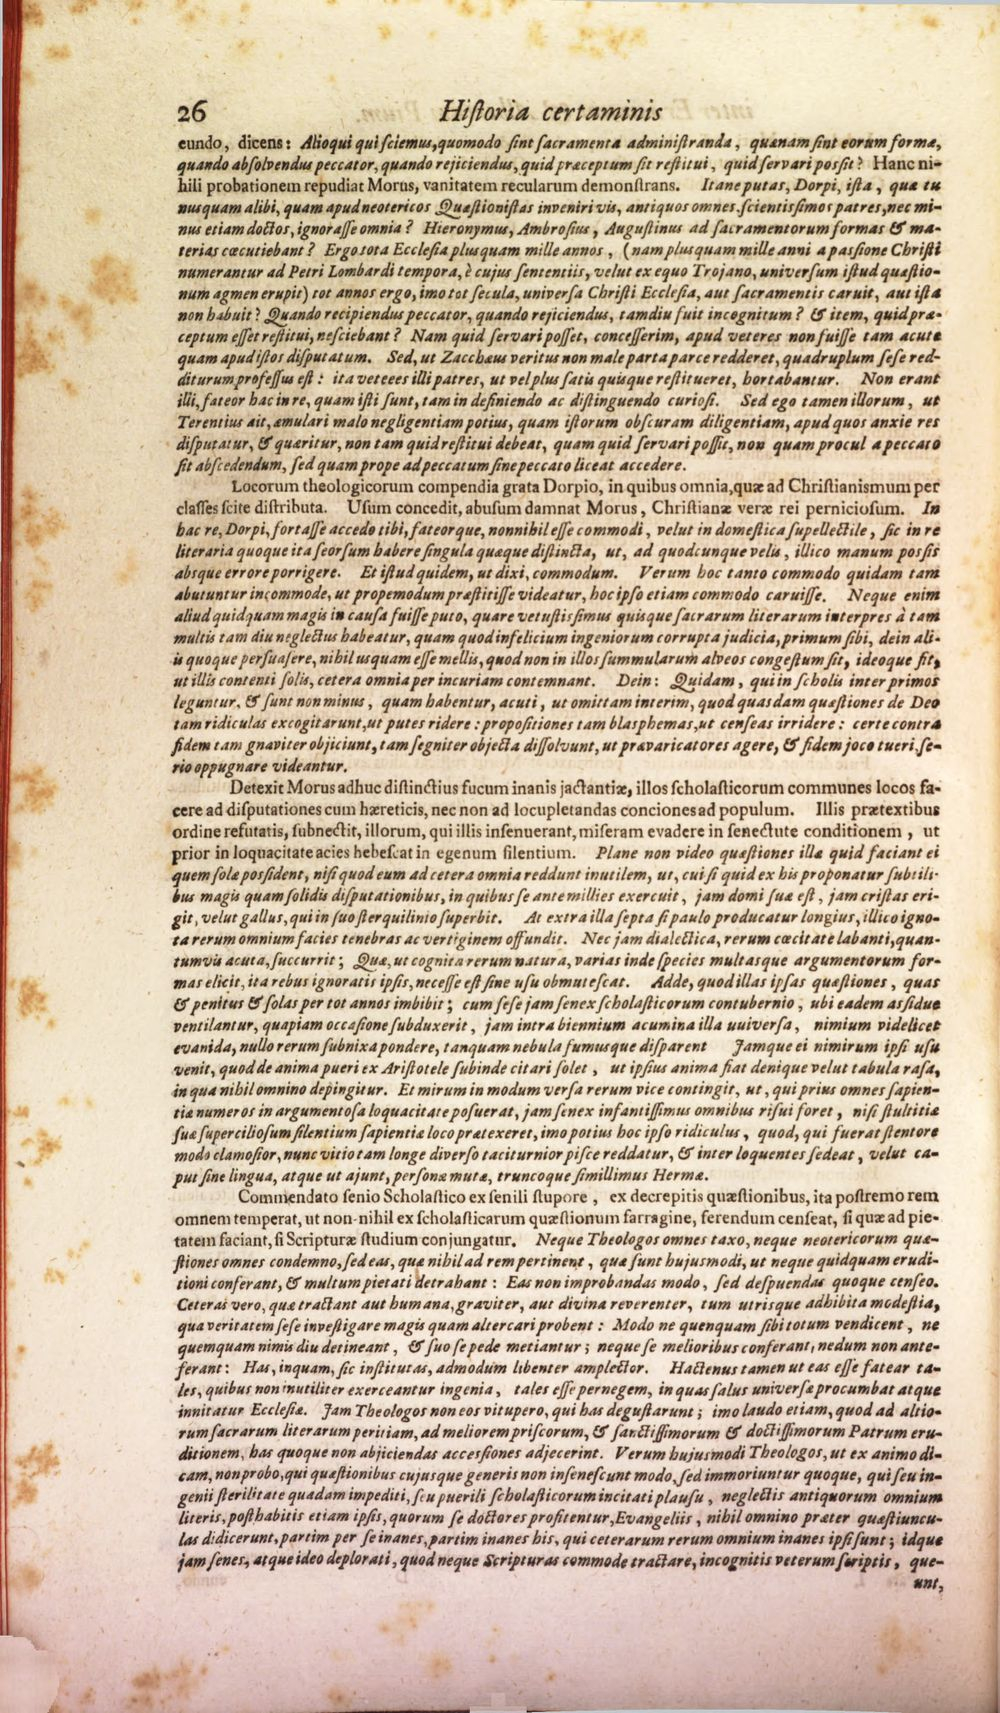 26 Hiſtoria certaminis
eundo, dicens: Alioqui qui ſciemus, quomodo ſint ſacramenta adminiſtranda, quænam ſint eorum formæ,
quando abſolvendus peccator, quando rejiciendus, quid præceptum ſit reſtitui, quid ſervari poſſit? Hanc ni-
hili probationem repudiat Morus, vanitatem recularum demonſtrans. Itane putas, Dorpi, iſta, quæ tu
nusquam alibi, quam apud neotericos Quæſtioniſtas inveniri vis, antiquos omnes ſcientiſſimos patres, nec mi-
nus etiam doctos, ignoraſſe omnia? Hieronymus, Ambroſius, Auguſtinus ad ſacramentorum formas & ma-
terias cœcutiebant? Ergo tota Eccleſia plus quam mille annos, (nam plus quam mille anni a paſſione Chriſti
numerantur ad Petri Lombardi tempora, è cujus ſententiis, velut ex equo Trojano, univerſum iſtud quæſtio-
num agmen erupit) tot annos ergo, imo tot ſecula, univerſa Chriſti Eccleſia, aut ſacramentis caruit, aut iſta
non habuit? Quando recipiendus peccator, quando rejiciendus, tamdiu fuit incognitum? & item, quid præ-
ceptum eſſet reſtitui, neſciebant? Nam quid ſervari poſſet, conceſſerim, apud veteres non fuiſſe tam acute
quam apud iſtos diſputatum. Sed, ut Zacchæus veritus non male parta parce redderet, quadruplum ſeſe red-
diturum profeſſus eſt: ita veteees illi patres, ut vel plus ſatis quisque reſtitueret, hortabantur. Non erant
illi, fateor hac in re, quam iſti ſunt, tam in definiendo ac diſtinguendo curioſi. Sed ego tamen illorum, ut
Terentius ait, æmulari malo negligentiam potius, quam iſtorum obſcuram diligentiam, apud quos anxie res
diſputatur, & quæritur, non tam quid reſtitui debeat, quam quid ſervari poſſit, non quam procul a peccato
ſit abſcedendum, ſed quam prope ad peccatum ſine peccato liceat accedere.
Locorum theologicorum compendia grata Dorpio, in quibus omnia, quæ ad Chriſtianismum per
claſſes ſcite diſtributa. Uſum concedit, abuſum damnat Morus, Chriſtianæ veræ rei pernicioſum. In
hac re, Dorpi, fortaſſe accedo tibi, fateorque, nonnihil eſſe commodi, velut in domeſtica ſupellectile, ſic in re
literaria quoque ita ſeorſum habere ſingula quæque diſtincta, ut, ad quodcunque velis, illico manum poſſis
absque errore porrigere. Et iſtud quidem, ut dixi, commodum. Verum hoc tanto commodo quidam tam
abutuntur incommode, ut propemodum præſtitiſſe videatur, hoc ipſo etiam commodo caruiſſe. Neque enim
aliud quidquam magis in cauſa fuiſſe puto, quare vetuſtiſſimus quisque ſacrarum literarum interpres à tam
multis tam diu neglectus habeatur, quam quod infelicium ingeniorum corrupta judicia, primum ſibi, dein ali-
is quoque perſuaſere, nihil usquam eſſe mellis, quod non in illos ſummularum alveos congeſtum ſit, ideoque fit,
ut illis contenti ſolis, cetera omnia per incuriam contemnant. Dein: Quidam, qui in ſcholis inter primos
leguntur, & ſunt non minus, quam habentur, acuti, ut omittam interim, quod quasdam quæſtiones de Deo
tam ridiculas excogitarunt, ut putes ridere: propoſitiones tam blasphemas, ut cenſeas irridere: certe contra
fidem tam gnaviter objiciunt, tam ſegniter objecta diſſolvunt, ut prævaricatores agere, & fidem joco tueri, ſe-
rio oppugnare videantur.
Detexit Morus adhuc diſtinctius fucum inanis jactantiæ, illos ſcholaſticorum communes locos fa-
cere ad diſputationes cum hæreticis, nec non ad locupletandas conciones ad populum. Illis prætextibus
ordine refutatis, ſubnectit, illorum, qui illis inſenuerant, miſeram evadere in ſenectute conditionem, ut
prior in loquacitate acies hebeſcat in egenum ſilentium. Plane non video quæſtiones illæ quid faciant ei
quem ſolæ poſſident, niſi quod eum ad cetera omnia reddunt inutilem, ut, cui ſi quid ex his proponatur ſubtili-
bus magis quam ſolidis diſputationibus, in quibus ſe ante millies exercuit, jam domi ſuæ eſt, jam criſtas eri-
git, velut gallus, qui in ſuo ſterquilinio ſuperbit. At extra illa ſepta ſi paulo producatur longius, illico igno-
ta rerum omnium facies tenebras ac vertiginem offundit. Nec jam dialectica, rerum cœcitate labanti, quan-
tumvis acuta, ſuccurrit; Quæ, ut cognita rerum natura, varias inde ſpecies multasque argumentorum for-
mas elicit, ita rebus ignoratis ipſis, neceſſe eſt ſine uſu obmuteſcat. Adde, quod illas ipſas quæſtiones, quas
& penitus & ſolas per tot annos imbibit; cum ſeſe jam ſenex ſcholaſticorum contubernio, ubi eadem aſſidue
ventilantur, quapiam occaſione ſubduxerit, jam intra biennium acumina illa uuiverſa, nimium videlicet
evanida, nullo rerum ſubnixa pondere, tanquam nebula fumusque diſparent Jamque ei nimirum ipſi uſu
venit, quod de anima pueri ex Ariſtotele ſubinde citari ſolet, ut ipſius anima fiat denique velut tabula raſa,
in qua nihil omnino depingitur. Et mirum in modum verſa rerum vice contingit, ut, qui prius omnes ſapien-
tiæ numeros in argumentoſa loquacitate poſuerat, jam ſenex infantiſſimus omnibus riſui foret, niſi ſtultitiæ
ſuæ ſupercilioſum ſilentium ſapientiæ loco prætexeret, imo potius hoc ipſo ridiculus, quod, qui fuerat ſtentore
modo clamoſior, nunc vitio tam longe diverſo taciturnior piſce reddatur, & inter loquentes ſedeat, velut ca-
put ſine lingua, atque ut ajunt, perſonæ mutæ, truncoque ſimillimus Hermæ.
Commendato ſenio Scholaſtico ex ſenili ſtupore, ex decrepitis quæſtionibus, ita poſtremo rem
omnem temperat, ut non-nihil ex ſcholaſticarum quæſtionum farragine, ferendum cenſeat, ſi quæ ad pie-
tatem faciant, ſi Scripturæ ſtudium conjungatur. Neque Theologos omnes taxo, neque neotericorum quæ-
ſtiones omnes condemno, ſed eas, quæ nihil ad rem pertinent, quæ ſunt hujusmodi, ut neque quidquam erudi-
tioni conferant, & multum pietati detrahant: Eas non improbandas modo, ſed deſpuendas quoque cenſeo.
Ceteras vero, quæ tractant aut humana, graviter, aut divina reverenter, tum utrisque adhibita modeſtia,
qua veritatem ſeſe inveſtigare magis quam altercari probent: Modo ne quenquam ſibi totum vendicent, ne
quemquam nimis diu detineant, & ſuo ſe pede metiantur; neque ſe melioribus conferant, nedum non ante-
ferant: Has, inquam, ſic inſtitutas, admodum libenter amplector. Hactenus tamen ut eas eſſe fatear ta-
les, quibus non inutiliter exerceantur ingenia, tales eſſe pernegem, in quas ſalus univerſæ procumbat atque
innitatur Eccleſiæ. Jam Theologos non eos vitupero, qui has deguſtarunt; imo laudo etiam, quod ad altio-
rum ſacrarum literarum peritiam, ad meliorem priſcorum, & ſanctiſſimorum & doctiſſimorum Patrum eru-
ditionem, has quoque non abjiciendas acceſſiones adjecerint. Verum hujusmodi Theologos, ut ex animo di-
cam, non probo, qui quæſtionibus cujusque generis non inſeneſcunt modo, ſed immoriuntur quoque, qui ſeu in-
genii ſterilitate quadam impediti, ſeu puerili ſcholaſticorum incitati plauſu, neglectis antiquorum omnium
literis, poſthabitis etiam ipſis, quorum ſe doctores profitentur, Evangeliis, nihil omnino præter quæſtiuncu-
las didicerunt, partim per ſe inanes, partim inanes his, qui ceterarum rerum omnium inanes ipſi ſunt; idque
jam ſenes, atque ideo deplorati, quod neque Scripturas commode tractare, incognitis veterum ſcriptis, que-
unt,